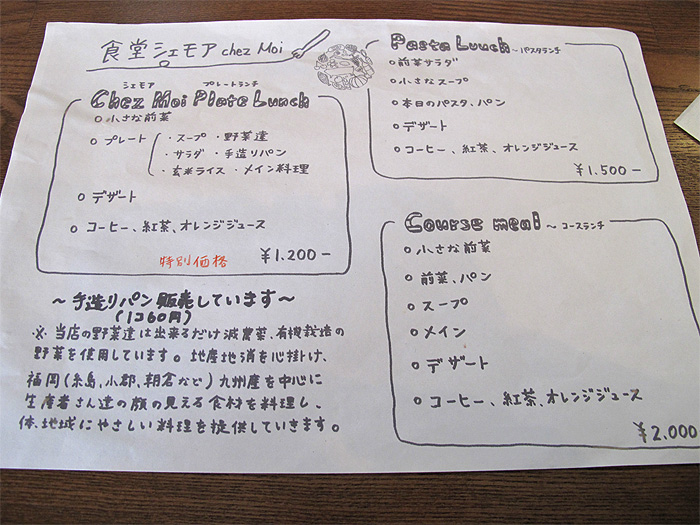 食堂シェモア chez Moi
シェモア プレートランチ
Chez Moi Plate Lunch
○小さな前菜
○プレート ・スープ ・野菜達
・サラダ ・手造りパン
・玄米ライス ・メイン料理
○デザート
○コーヒー、紅茶、オレンジジュース
特別価格 ¥1.200-
～手造りパン販売しています～
(1コ60円)
※当店の野菜達は出来るだけ減農薬、有機栽培の
野菜を使用しています。地産地消を心掛け、
福岡(糸島、小郡、朝倉など)九州産を中心に
生産者さん達の顔の見える食材を料理し、
体、地域にやさしい料理を提供していきます。
Pasta Lunch ～パスタランチ
○前菜サラダ
○小さなスープ
○本日のパスタ、パン
○デザート
○コーヒー、紅茶、オレンジジュース
¥1.500-
Course meal ～コースランチ
○小さな前菜
○前菜、パン
○スープ
○メイン
○デザート
○コーヒー、紅茶、オレンジジュース
¥2.000